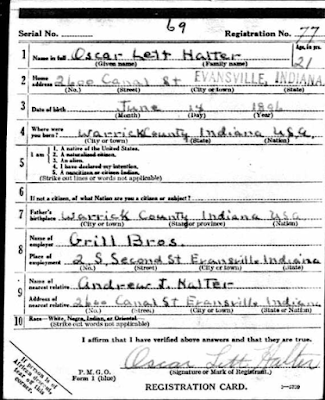 69
Serial No. Registration No. 77
1 Name in full Oscar Lett Halter Age, in yrs. 21
(Given name) (Family name)
2 Home address 2600 Canal St EVANSVILLE, INDIANA
(No.) (Street) (City or town) (State)
3 Date of birth June 14 1896
(Month) (Day) (Year)
4 Where were you born? Warrick County Indiana USA
(City or town) (State) (Nation)
5 I am
1. A native of the United States.
2. A naturalized citizen.
3. An alien.
4. I have declared my intention.
5. A noncitizen or citizen Indian.
(Strike out lines or words not applicable)
6 If not a citizen, of what Nation are you a citizen or subject?
7 Father's birthplace Warrick County Indiana USA
(City or town) (State or province) (Nation)
8 Name of employer Grill Bros.
Place of employment 2 S. Second St Evansville Indiana
(No.) (Street) (City or town) (State)
9 Name of nearest relative Andrew J. Halter
Address of nearest relative 2600 Canal St Evansville Indiana
(No.) (Street) (City or town) (State or Nation)
10 Race—White, Negro, Indian, or Oriental
(Strike out words not applicable)
I affirm that I have verified above answers and that they are true.
Oscar Lett Halter
P. M. G. O.
Form 1 (blue)
(Signature or Mark of Registrant.)
REGISTRATION CARD.
If person is of African descent, tear off this corner.